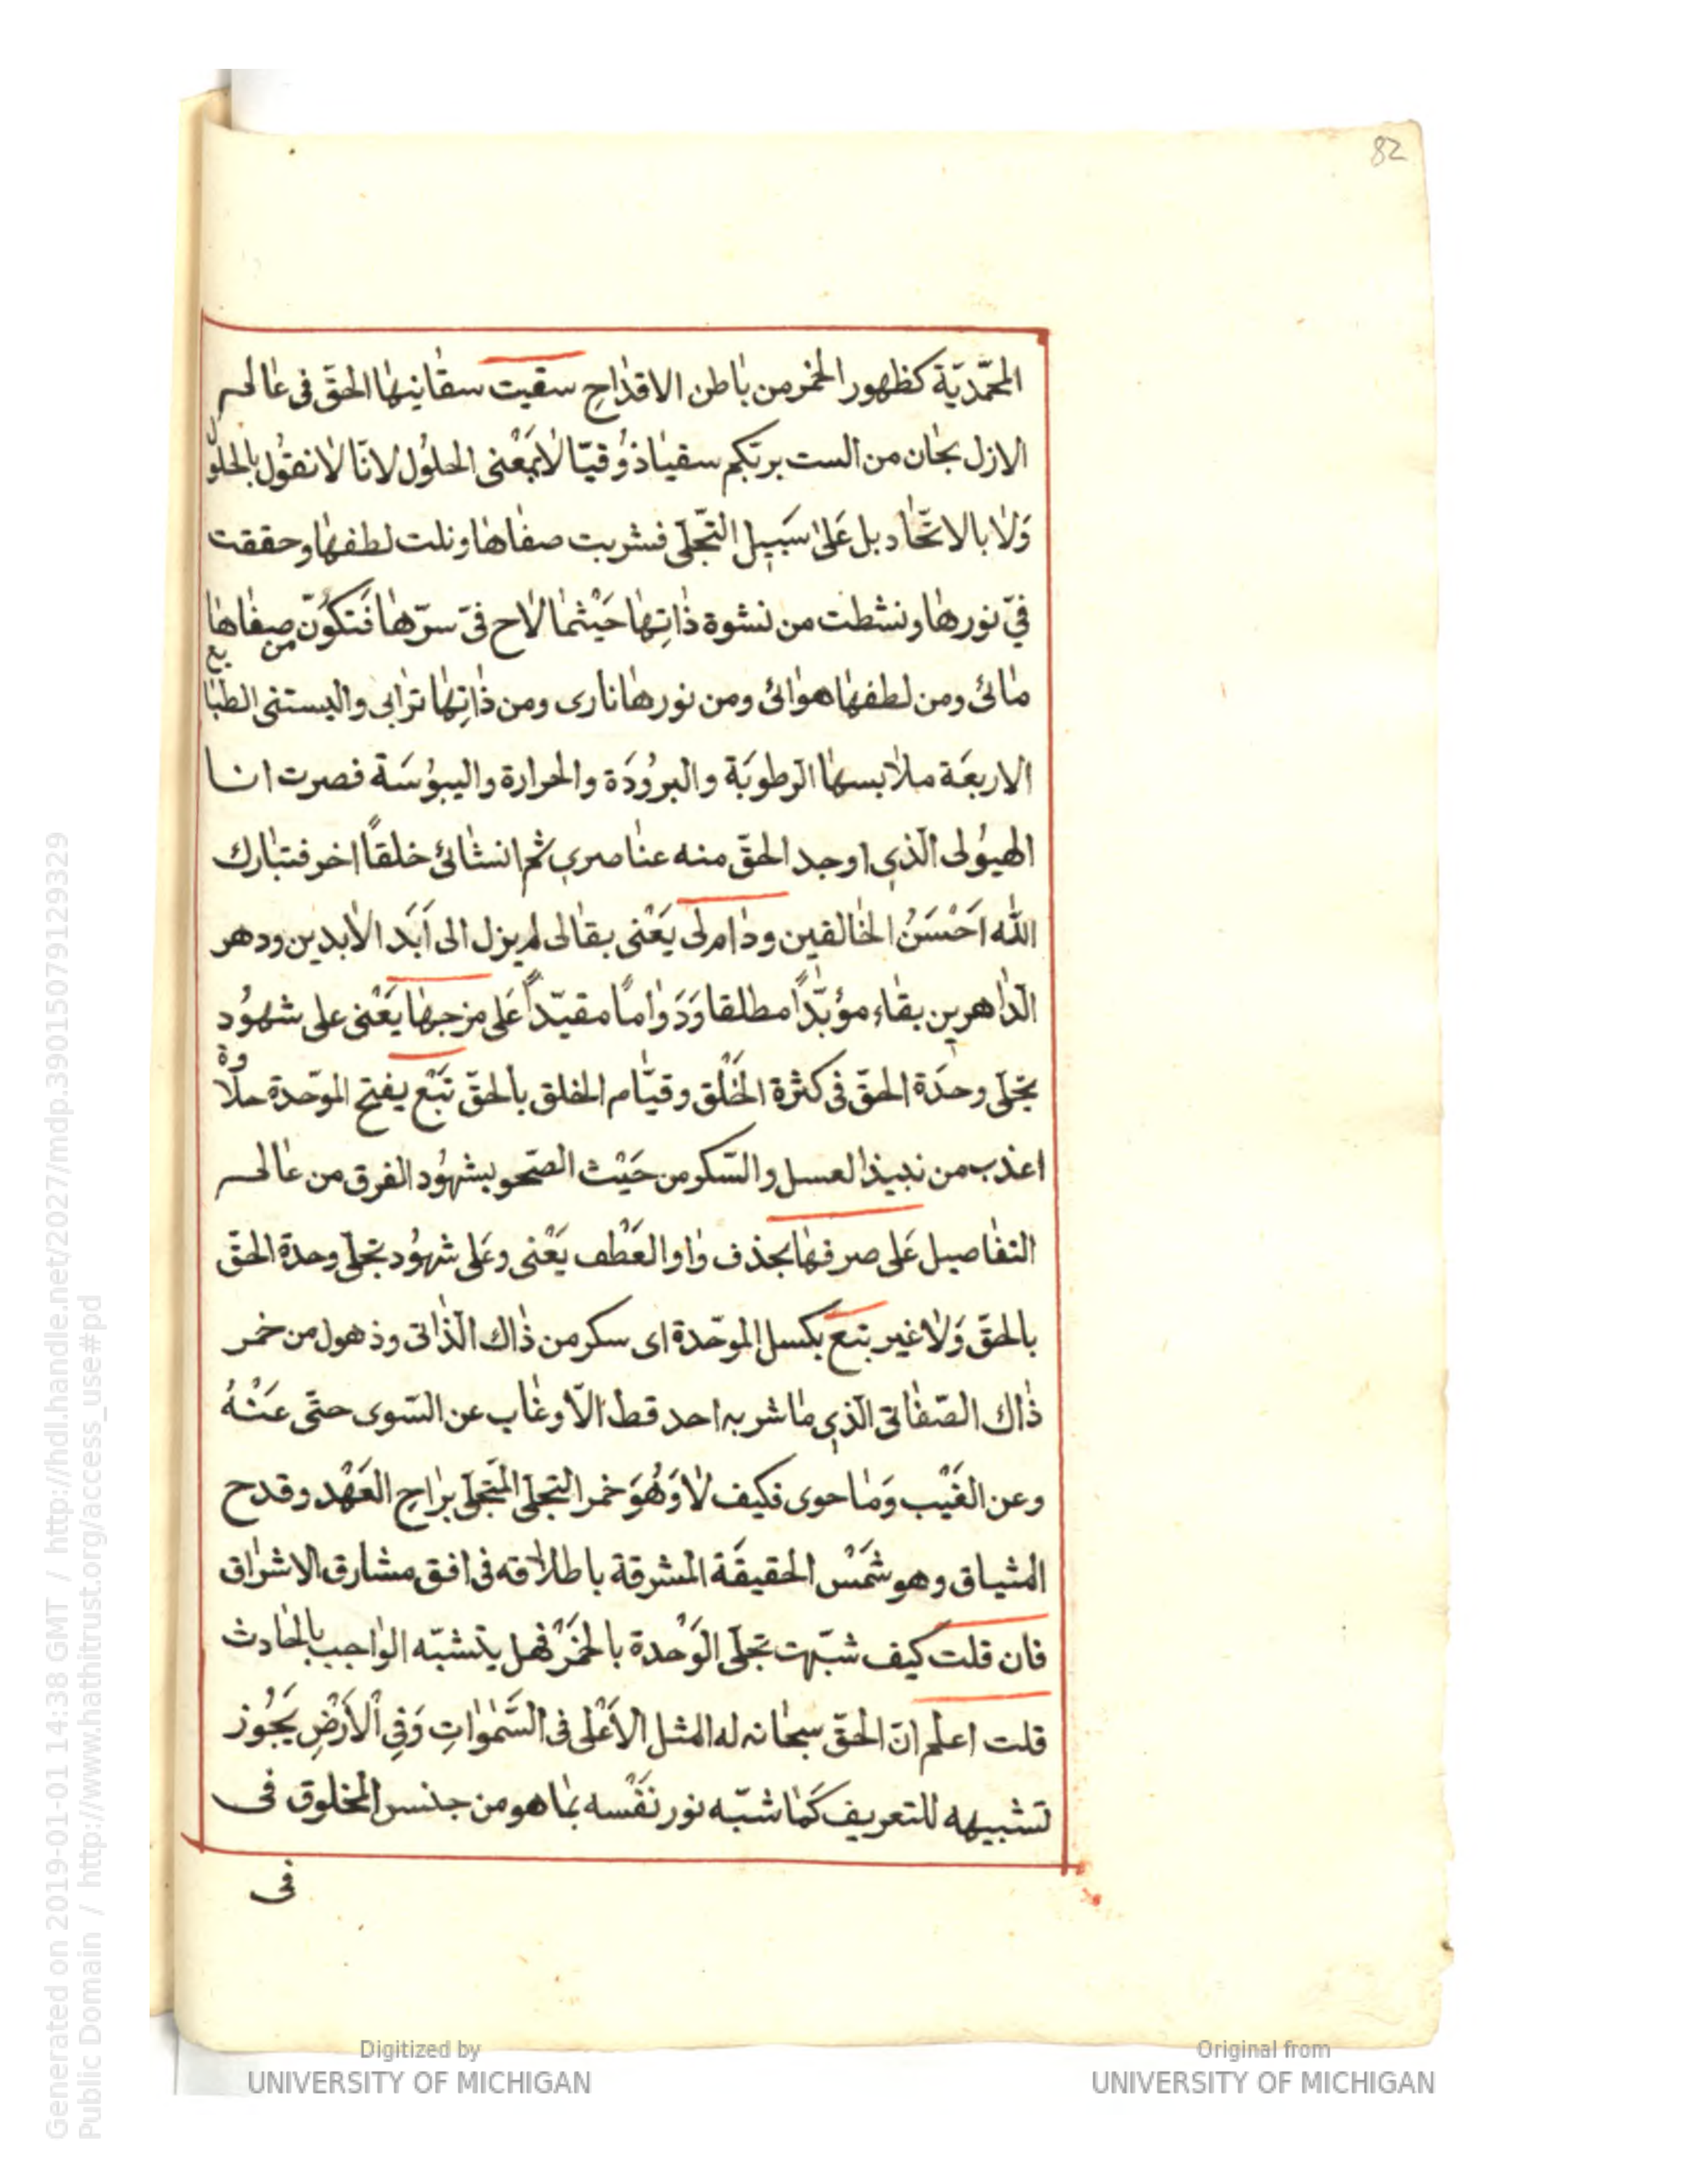 82
المحمّديّة كظهور الخمر من باطن الاقداح سقيت سقانيها الحقّ فى عالم
الازل بحان من الست بربّكم سقيا ذوقيّا لا بمعنى الحلول لانّا لا نقول بالحلول
ولا بالاتّحاد بل على سبيل التّجلّى فشربت صفاها ونلت لطفها وحققت
فىّ نورها ونشطت من نشوة ذاتها حيثما لاح فىّ سرّها فتكوّن من صفاها
مائى ومن لطفها هوائى ومن نورها نارى ومن ذاتها ترابى والبستنى الطبايع
الاربعة ملابسها الرّطوبة والبرودة والحرارة واليبوسة فصرت انا
الهيولى الّذى اوجد الحقّ منه عناصرى ثم انشائى خلقاً اخر فتبارك
الله اَحْسَنُ الخالقين ودام لى يَعْنى بقالى لم يزل الى اَبَد الابدين ودهر
الدّاهرين بقاء مؤبّداً مطلقا وَدَواماً مقيّداً عَلى مزجها يَعْنى على شهود
تجلّى وحدة الحقّ فى كثرة الخَلْق وقيام الخلق بالحقّ تَبْع يفتح الموحّدة حلاوة
اعذب من نبيذ العسل والسّكر من حَيْث الصّحو بشهود الفرق من عالم
التفاصيل عَلى صرفها بحذف واو العَطْف يَعْنى وعَلى شهود تجلّى وحدة الحقّ
بالحقّ وَلا غير بتع بكسل الموحّدة اى سكر من ذاك الذّاتى وذهول من خمر
ذاك الصّفاتى الّذى ما شربه احد قط الاّ وغاب عن السّوى حتّى عَنْهُ
وعن الغَيْب وَما حوى فكيف لا وَهُوَ خمر التجلّى المتجلّى براح العَهْد وقدح
المثياق وهو شَمْس الحقيقة المشرقة باطلاقه فى افق مشارق الاشراق
فان قلت كيف شبّهت تجلّى الوَحْدة بالخَمْر فهل يتشبّه الواجب بالحادث
قلت اعلم انّ الحقّ سبحانه له المثل الاَعْلى فى السَّمٰواتِ وَفِى الْاَرْضِ يَجُوز
تشبيهه للتعريف كَما شبّه نور نَفْسه بما هو من جنس المخلوق فى
فى
Generated on 2019-01-01 14:38 GMT / http://hdl.handle.net/2027/mdp.39015079129329
Public Domain / http://www.hathitrust.org/access_use#pd
Digitized by
UNIVERSITY OF MICHIGAN
Original from
UNIVERSITY OF MICHIGAN